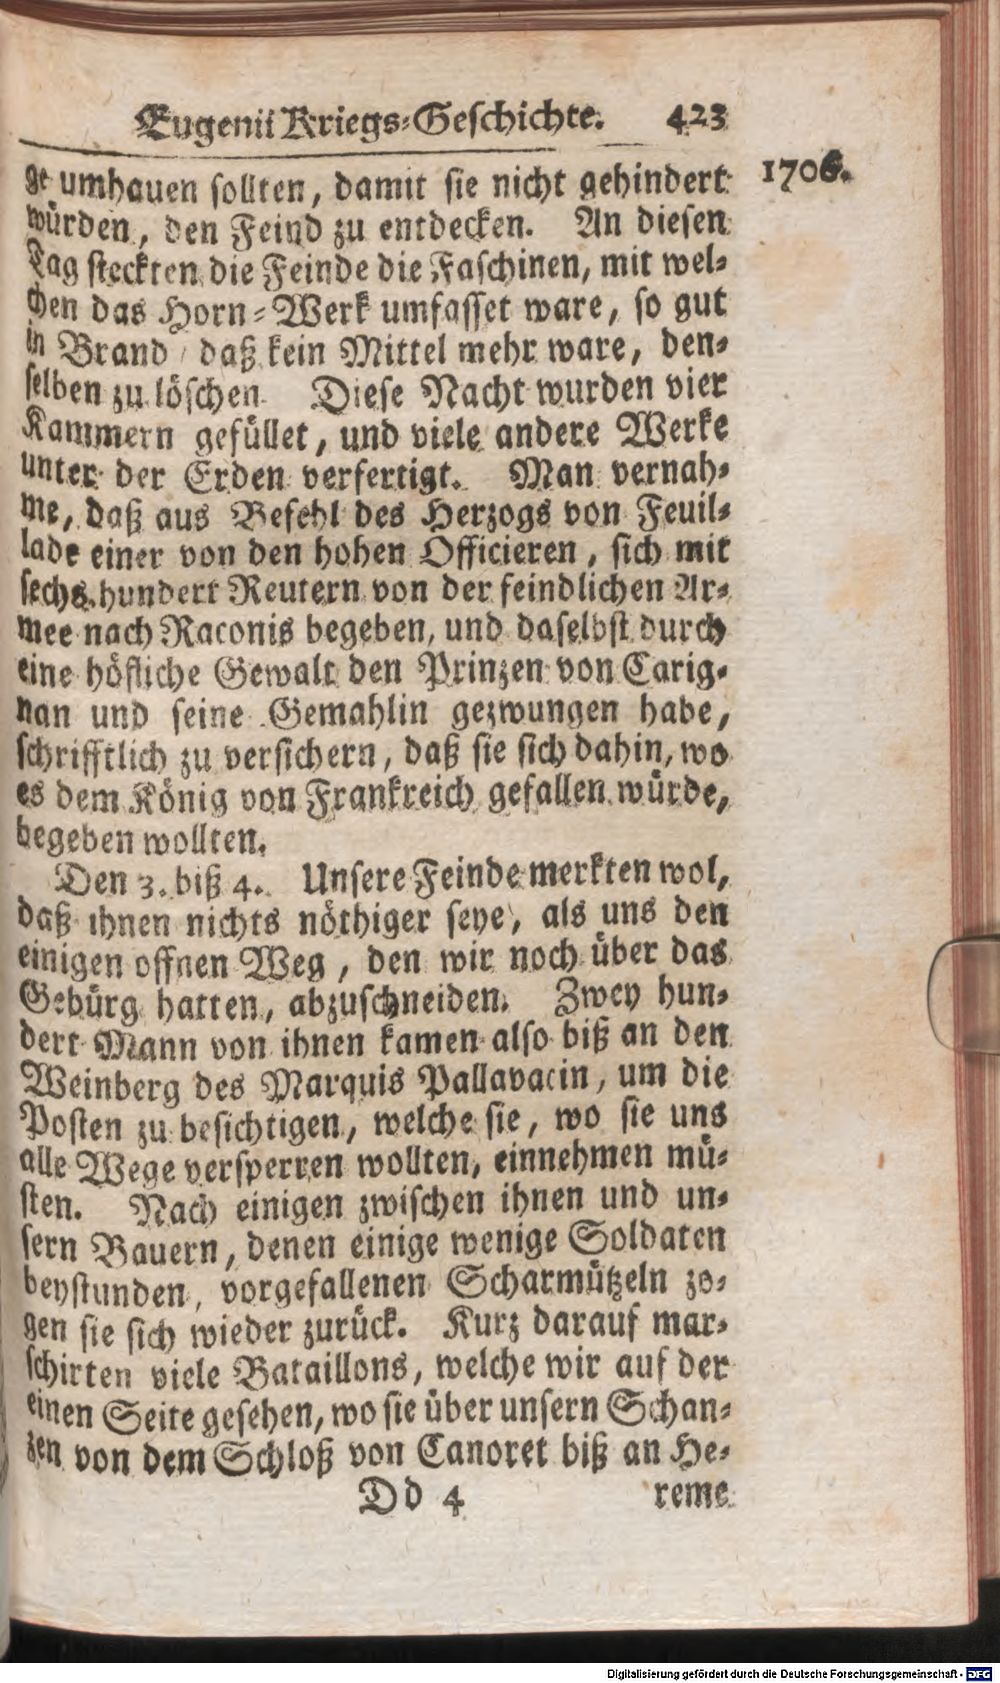 Eugenii Kriegs-Geschichte. 423
1706.
ge umhauen sollten, damit sie nicht gehindert
würden, den Feind zu entdecken. An diesen
Tag steckten die Feinde die Faschinen, mit wel-
chen das Horn-Werk umfasset ware, so gut
in Brand, daß kein Mittel mehr ware, den-
selben zu löschen. Diese Nacht wurden vier
Kammern gefüllet, und viele andere Werke
unter der Erden verfertigt. Man vernah-
me, daß aus Befehl des Herzogs von Feuil-
lade einer von den hohen Officieren, sich mit
sechs hundert Reutern von der feindlichen Ar-
mee nach Raconis begeben, und daselbst durch
eine höfliche Gewalt den Prinzen von Carig-
nan und seine Gemahlin gezwungen habe,
schrifftlich zu versichern, daß sie sich dahin, wo
es dem König von Frankreich gefallen würde,
begeben wollten.
Den 3. biß 4. Unsere Feinde merkten wol,
daß ihnen nichts nöthiger seye, als uns den
einigen offnen Weg, den wir noch über das
Gebürg hatten, abzuschneiden. Zwey hun-
dert Mann von ihnen kamen also biß an den
Weinberg des Marquis Pallavacin, um die
Posten zu besichtigen, welche sie, wo sie uns
alle Wege versperren wollten, einnehmen mü-
sten. Nach einigen zwischen ihnen und un-
sern Bauern, denen einige wenige Soldaten
beystunden, vorgefallenen Scharmützeln zo-
gen sie sich wieder zurück. Kurz darauf mar-
schirten viele Bataillons, welche wir auf der
einen Seite gesehen, wo sie über unsern Schan-
zen von dem Schloß von Canoret biß an He-
Dd 4 reme
Digitalisierung gefördert durch die Deutsche Forschungsgemeinschaft - DFG